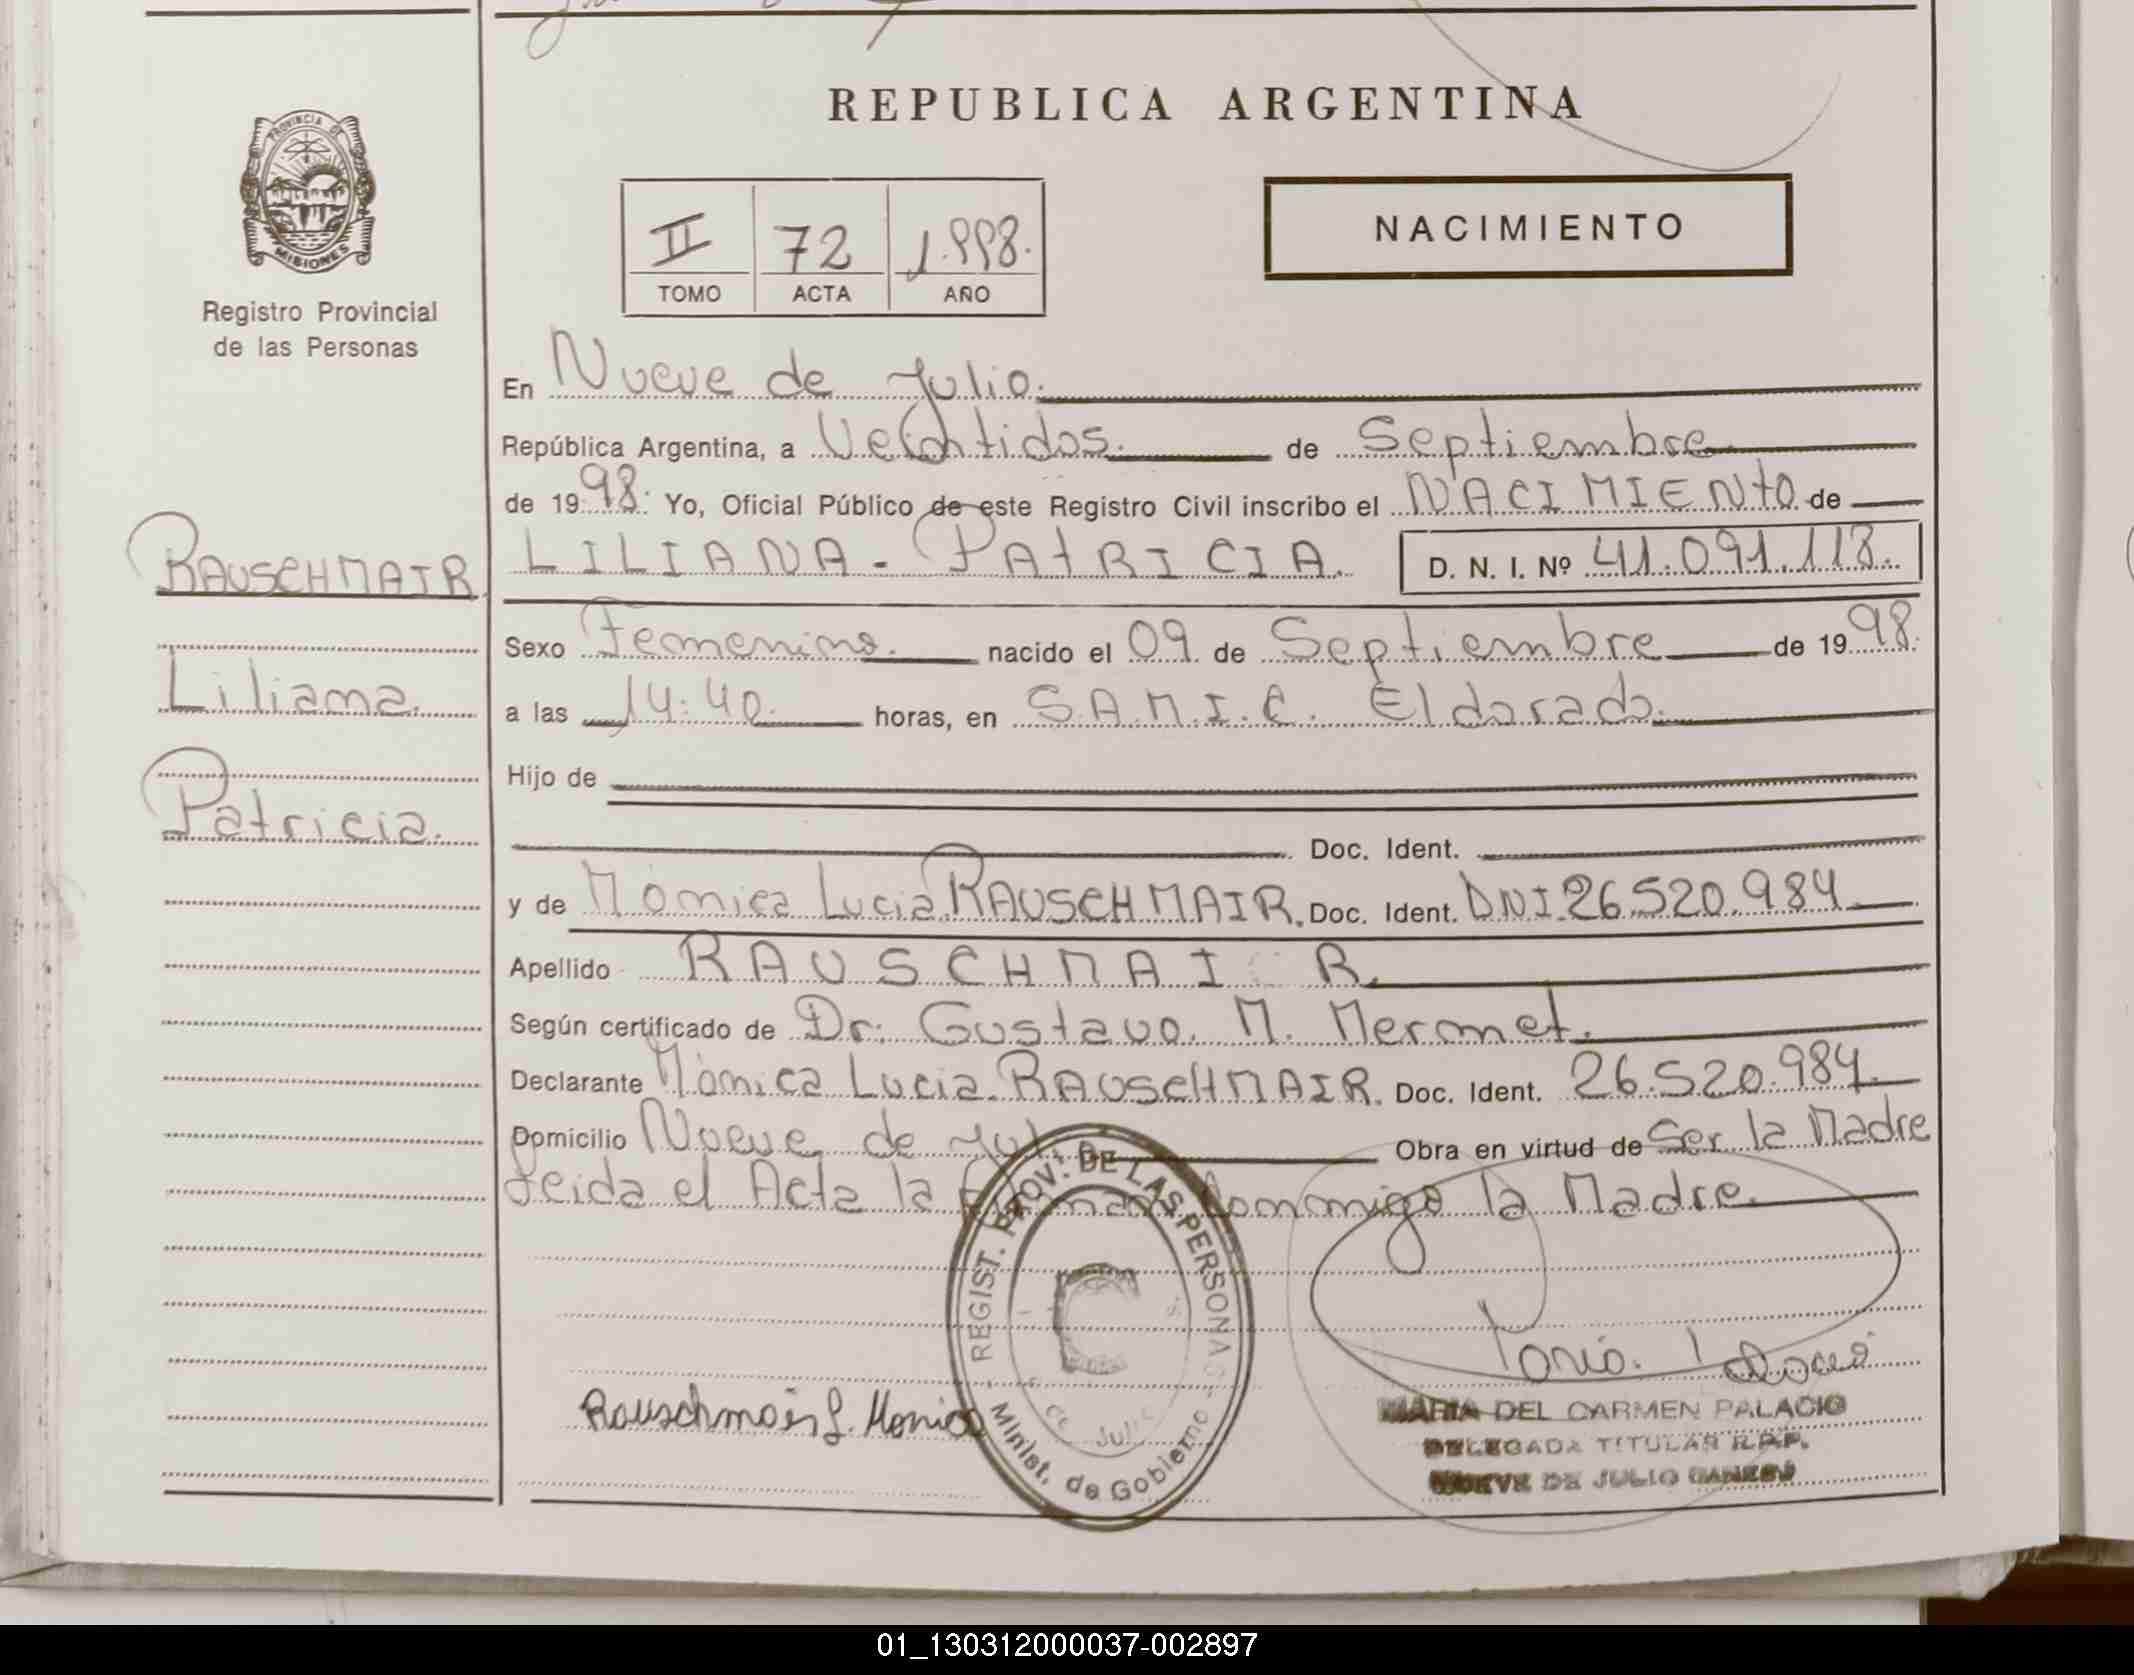 REPUBLICA ARGENTINA
PROVINCIA DE MISIONES
Registro Provincial
de las Personas
II 72 1.998.
TOMO ACTA AÑO
NACIMIENTO
En Nueve de Julio.
República Argentina, a Veintidos. de Septiembre
de 1998. Yo, Oficial Público de este Registro Civil inscribo el NACIMIENTO de
RAUSCHMAIR
Liliana
Patricia.
LILIANA - PATRICIA. D. N. I. Nº 41.091.118.
Sexo Femenino. nacido el 09 de Septiembre de 1998.
a las 14:40. horas, en S.A.M.I.C. Eldorado.
Hijo de
Doc. Ident.
y de Mónica Lucia RAUSCHMAIR. Doc. Ident. DNI.26.520.984
Apellido RAUSCHMAIR.
Según certificado de Dr. Gustavo. M. Mermet.
Declarante Mónica Lucia. RAUSCHMAIR. Doc. Ident. 26.520.984.
Domicilio Nueve de Jul Obra en virtud de Ser la Madre
Leida el Acta la firman conmigo la Madre.
REGIST. PROV. DE LAS PERSONAS
Minist. de Gobierno
de Julio
Rauschmair L. Monica
MARIA DEL CARMEN PALACIO
DELEGADA TITULAR R.P.P.
NUEVE DE JULIO
01_130312000037-002897